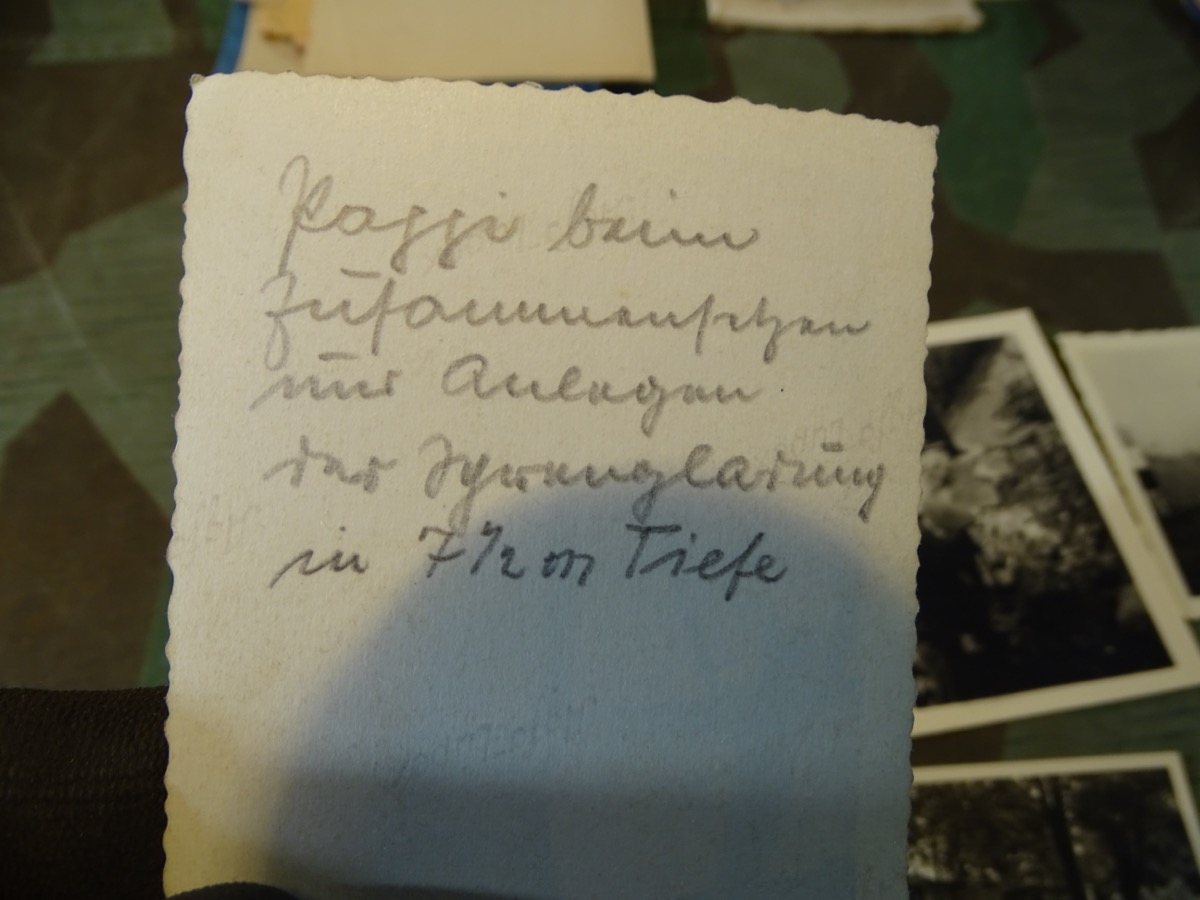 Paggi beim
Zusammensetzen
und Anlegen
der Sprengladung
in 7 1/2 m Tiefe